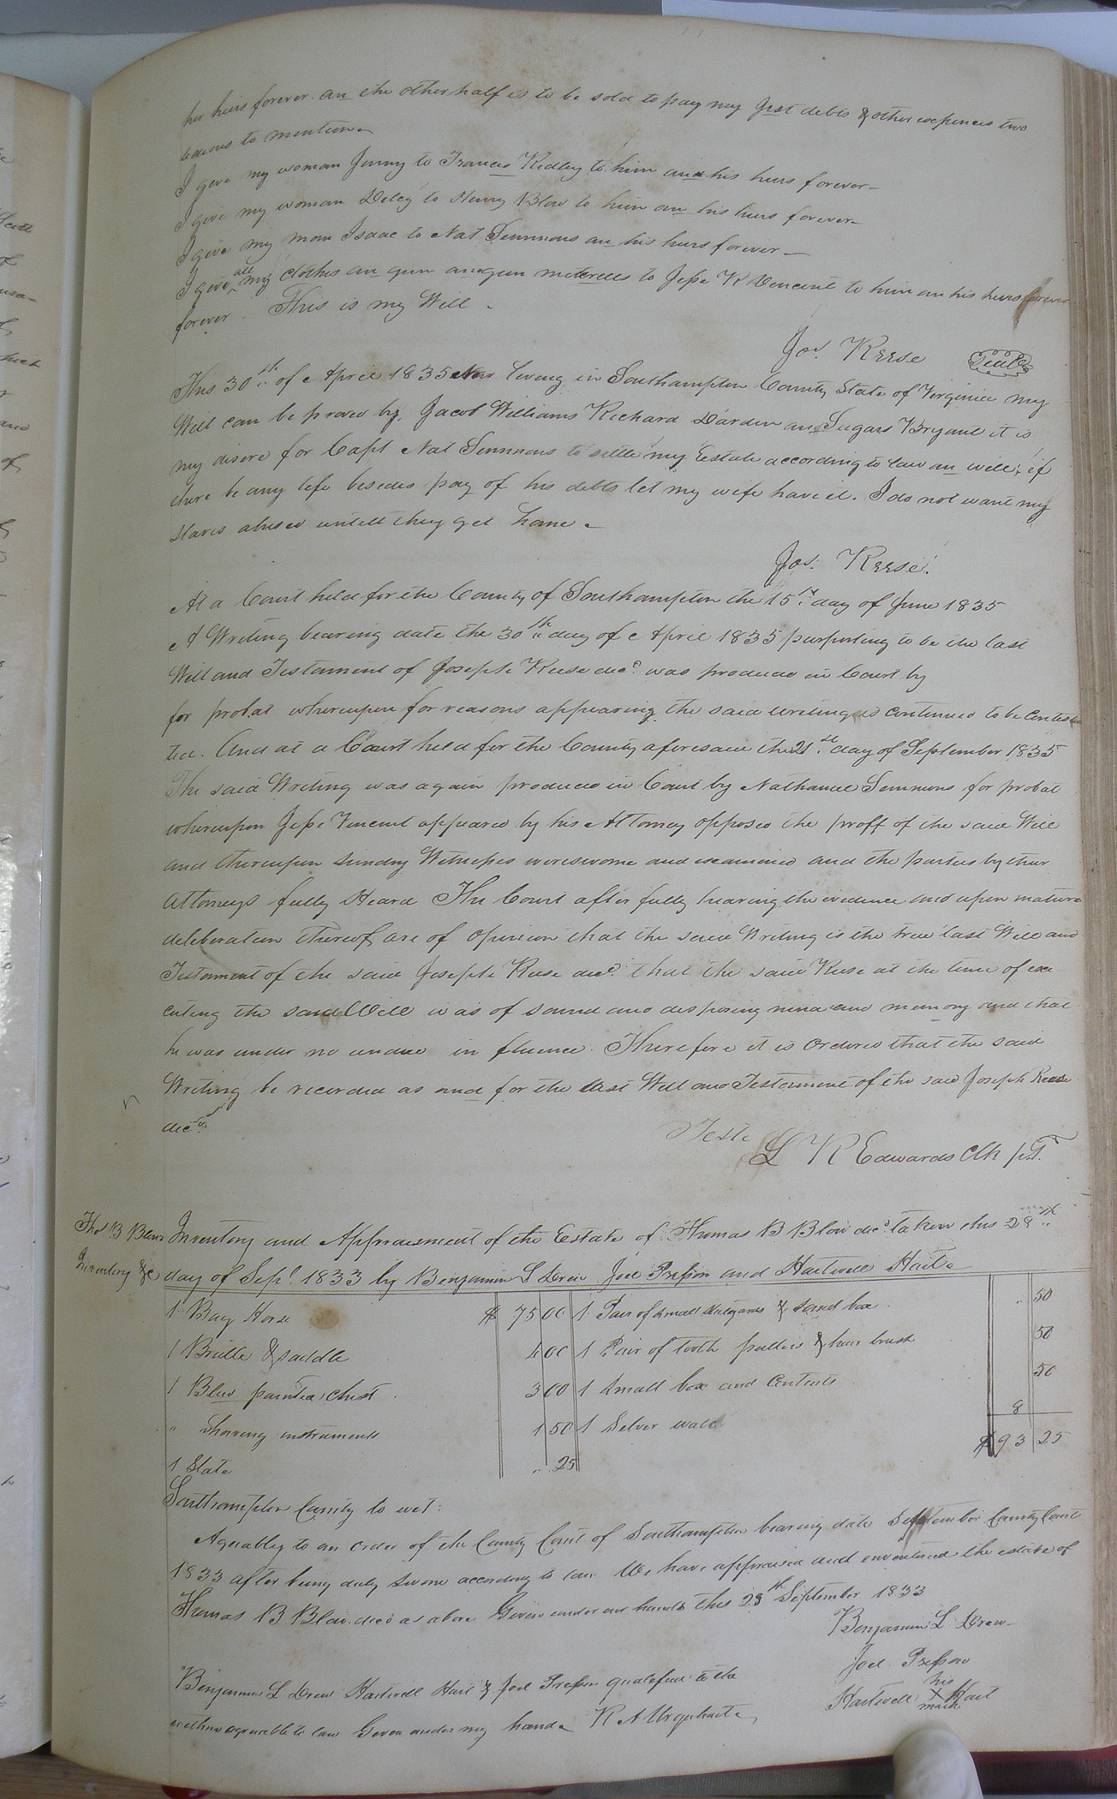 her heirs forever. an the other half is to be sold to pay my Just debts & other expences two
tedious to mention
I give my woman Jinny to Francis Ridley to him an his heirs forever
I give my woman to Henry Blow to him an his heirs forever
I give my man Isaac to Nat Simmons an his heirs forever
I give all my clothes an gun an gun meterells to Jesse K Vincent to him an his heirs forever
forever. This is my Will.
Jos. Reese Seal
This 30th of April 1835 Now living in Southampton County State of Virginia my
Will can be proved by, Jacob Williams Richard Darden an Sugars Bryant it is
my desire for Capt Nat Simmons to settle my Estate according to law an will, if
there be any left besides pay of his debts let my wife have it. I do not want my
slaves abused untill they get home
Jos. Reese.
At a Court held for the County of Southampton the 15th day of June 1835
A Writing bearing date the 30th day of April 1835 purporting to be the last
Will and Testament of Joseph Reese decd was produced in Court by
for probat whereupon for reasons appearing the said writing is continued to be contes
ted. And at a Court held for the County aforesaid the 21st day of September 1835
The said Writing was again produced in Court by Nathaniel Simmons for probat
whereupon Jesse Vincent appeared by his Attorney opposed the proff of the said Will
and thereupon sundry Witnesses were sworne and examined and the parties by their
Attorneys fully Heard The Court after fully hearing the evidence and upon mature
deliberation thereof are of opinion that the said Writing is the true last Will and
Testament of the said Joseph Reese decd that the said Reese at the time of exe
cuting the said Will was of sound and disposing mind and memory and that
he was under no undue in fluence. Therefore it is Ordered that the said
Writing be recorded as and for the last Will and Testament of the said Joseph Reese
decd
Teste
L R Edwards Clk
Thos B Blows Inventory and Appraisement of the Estate of Thomas B Blow decd taken this 28th
Inventory &c day of Sept. 1833 by Benjamin L Drew Joel Presson and Hartwell Hart
1 Bay Horse $ 75 00 1 Pair of small & sand box 50
1 Bridle & saddle 4 00 1 Pair of tooth pullers & hair brush 50
1 Blue painted chest 3 00 1 Small box and Contents 50
" Shaving instruments 1 50 1 Silver watch 8
1 Slate .. 25 $ 93 25
Southampton County to wit:
Agreeably to an order of the County Court of Southampton bearing date September County Court
1833 after being duly sworn according to law We have appraised and inventored the estate of
Thomas B Blow decd as above Given under our hands this 28th September 1833
Benjamin L Drew
Joel Presson
his
Hartwell X Hart
mark
Benjamin L Drew Hartwell Hart & Joel Presson qualified to the
within agreeable to law Given under my hand R A Urquhart